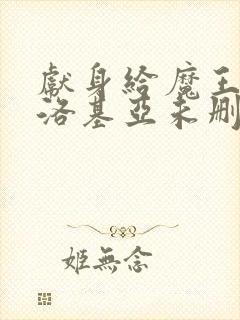 獻身給魔王
洛基亞未刪
姬無念